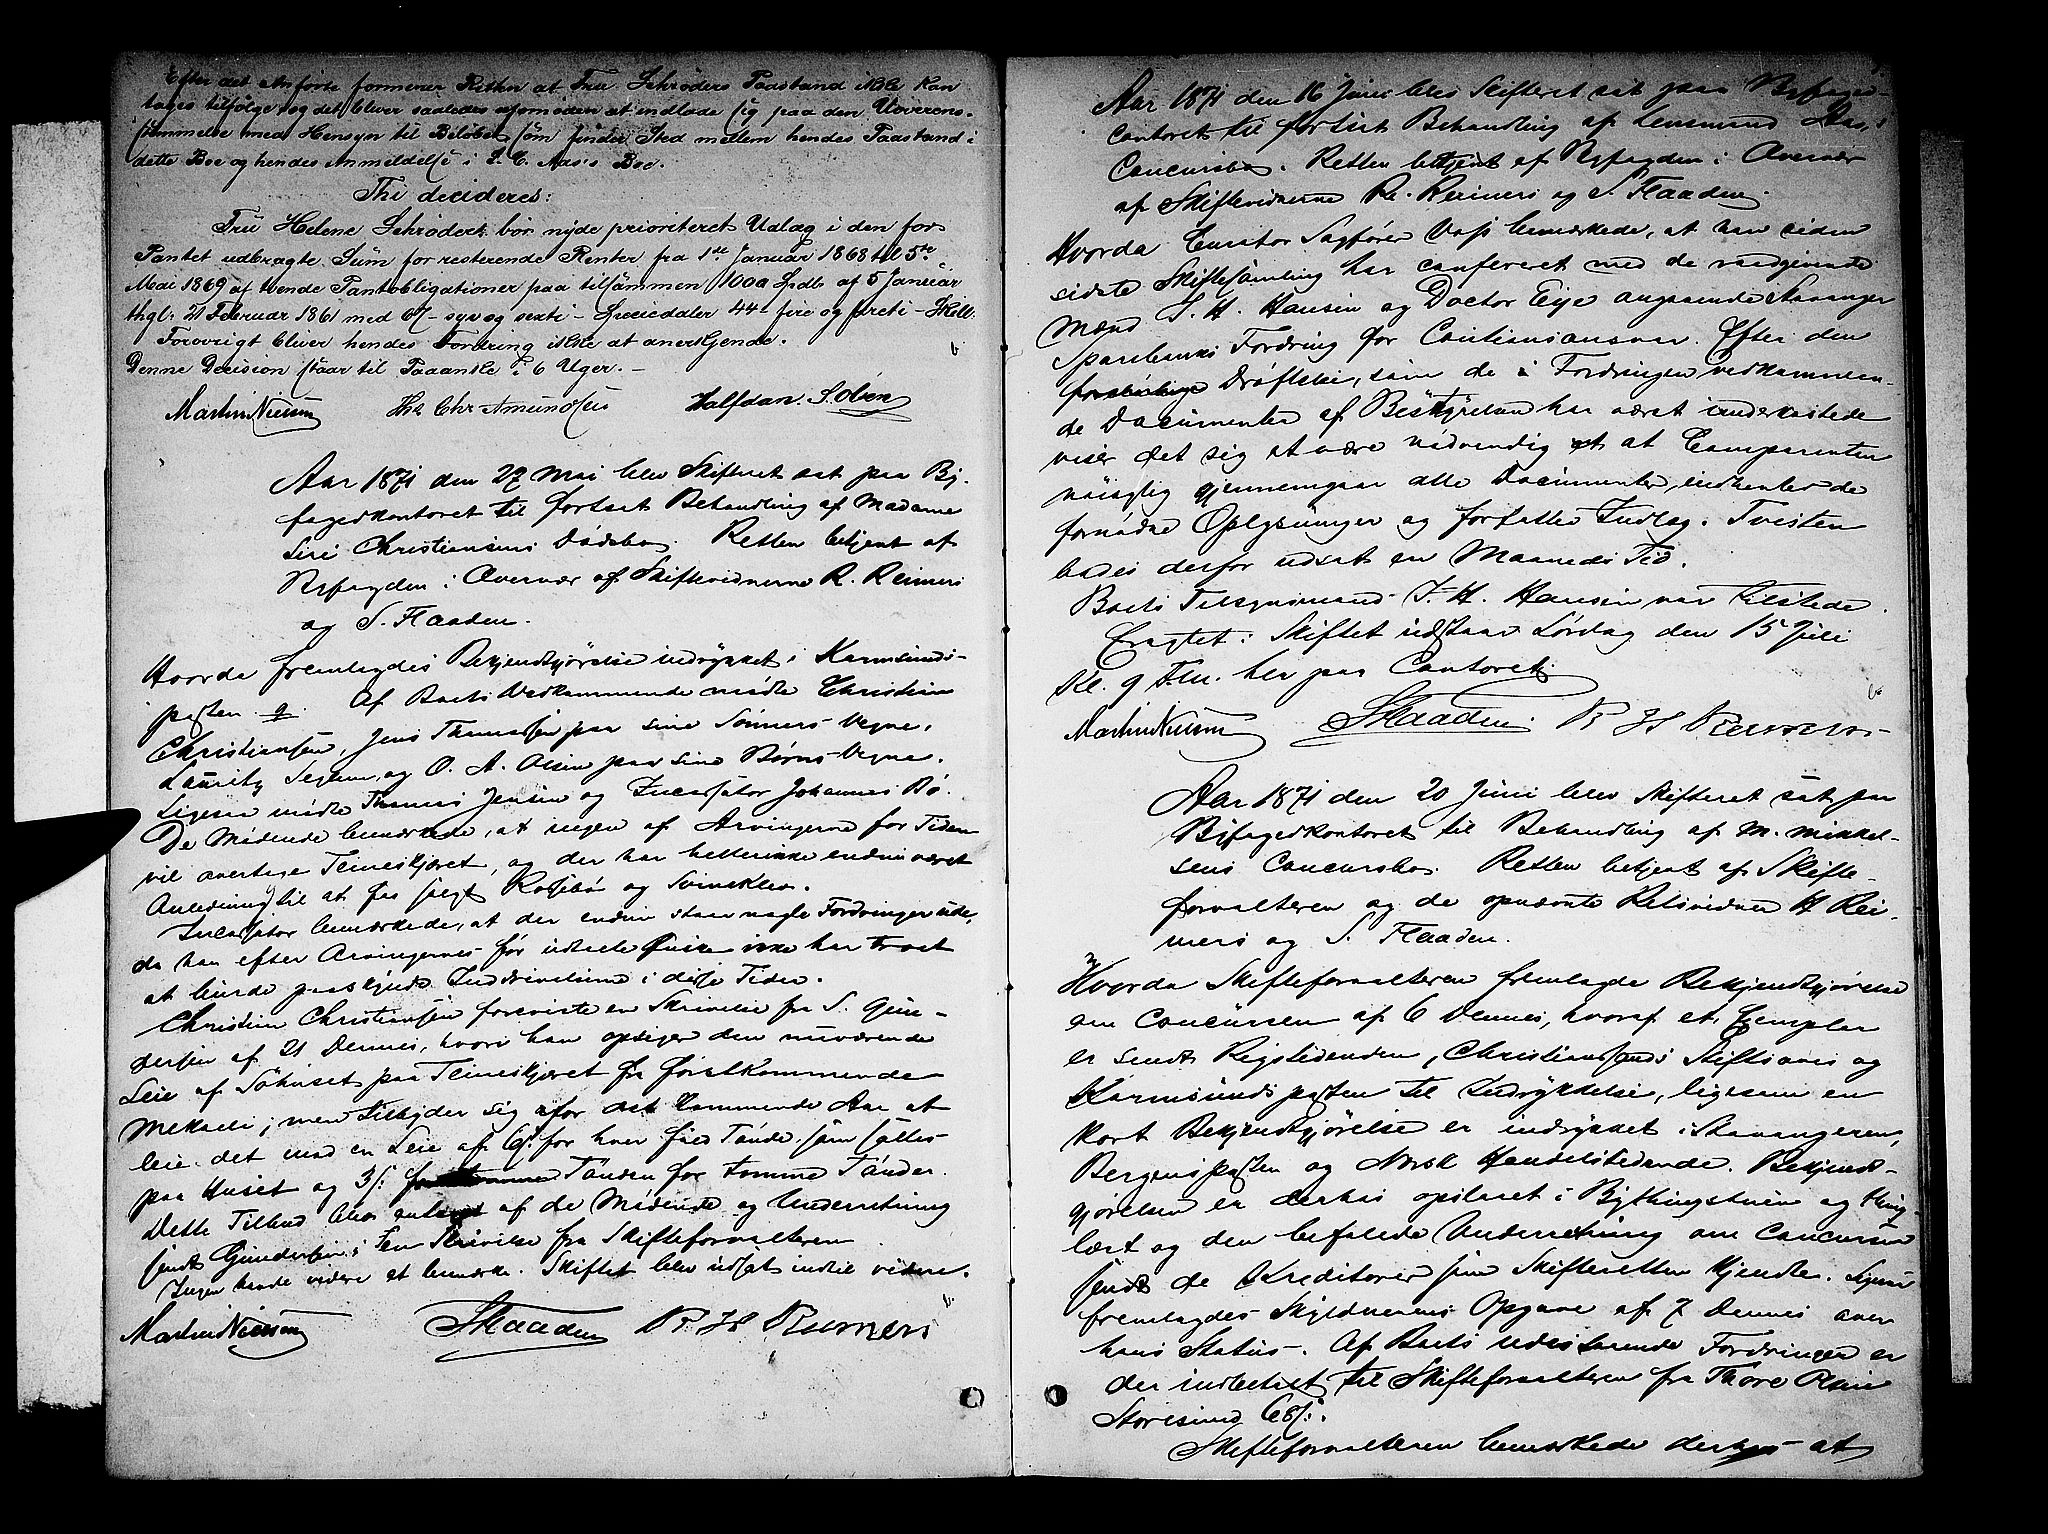 Efter det Anførte formener Retten at Fru Schrøders Paastand ikke kan
tages tilfølge og det bliver saaledes ufornøden at indlade sig paa den Uoverens-
stemmelse med Hensyn til Beløbet som finder Sted mellem hendes Paastand i
dette Boe og hendes Anmeldelse i S. C. Aas's Boe.
Thi decideres:
Fru Helene Schrøder bør nyde prioriteret Udlæg i den for
Pantet udbragte Sum for resterende Renter fra 1ste Januar 1868 til 5te
Mai 1869 af tvende Pantobligationer paa tilsammen 1000 Spdlr af 5 Januar
thgl: 21 Februar 1861 med 67 - syv og sexti - Speciedaler 44 fire og fireti - Skill.
Forøvrigt bliver hendes Fordring ikke at anerkjende.
Denne Decision staar til Paaanke i 6 Uger.
Martin Nielsen Chr Amundsen Halfdan S. Olsen
Aar 1871 den 27 Mai blev Skifteret sat paa By-
fogedkontoret til fortsat Behandling af Madame
Siri Christiansens Dødsbo. Retten betjent af
Byfogden i Overvær af Skiftevidnerne R. Reimers
og S. Flaaden.
Hvorda fremlagdes Bekjendtgjørelse indrykket i Karmsunds-
posten q. Af Boets Vedkommende mødte Christian
Christiansen, Jens Thomassen paa sine Sønners Vegne,
Lauritz Seglem, og O. A. Olsen paa sine Børns Vegne.
Ligesaa mødte Thomas Jensen og Incassator Johannes Bø.
De Mødende bemærkede, at ingen af Arvingerne for Tiden
vil overtage Teineskjæret, og der har heller ikke endnu været
Anledning til at faa solgt Rossebø og Svineklev.
Incassator bemærkede, at der endnu staar nogle Fordringer ude,
da han efter Arvingernes før udtalte Ønske ikke har troet
at burde paaskynde Inddrivelserne i disse Tider.
Christian Christiansen foreviste en Skrivelse fra S. Gun-
dersen af 21 Dennes, hvori han opsiger den nuværende
Leie af Søhuset paa Teineskjæret fra førstkommende
Mekaeli; men tilbyder sig for det kommende Aar at
leie det mod en Leie af 6 s. for hver fuld Tønde som saltes
paa Huset og 3 s: Tønden for tomme Tønder.
Dette Tilbud blev antaget af de Mødende og Underretning
sendt Gundersen i en Skrivelse fra Skifteforvalteren.
Ingen havde videre at bemærke. Skiftet blev udsat indtil videre.
Martin Nielsen S Flaaden R H Reimers
Aar 1871 den 16 Juni blev Skifteret sat paa Byfoged-
contoret til fortsat Behandling af Lensmand Aas's
Concursbo. Retten betjent af Byfogden i Overvær
af Skiftevidnerne R. Reimers og S. Flaaden.
Hvorda Curator Sagfører Voss bemærkede, at han siden
sidste Skiftesamling har confereret med de raadgivende
Mænd S. H. Hansen og Doctor Eie angaaende Stavanger
Sparebanks Fordring for Cautionsansvar. Efter den
foreløbige Drøftelse, som de i Fordringen vedkommen-
de Documenter af Bestyrelsen har været underkastede
viser det sig at være nødvendig at Comparenten
nøiagtig gjennemgaar alle Documenter, indhenter de
fornødne Oplysninger og forfatter Indlæg. Tvisten
bades derfor udsat en Maaneds Tid.
Boets Tilsynsmand S. H. Hansen var tilstede.
Eragtet: Skiftet udstaar Lørdag den 15 Juli
Kl. 9 Fm. her paa Contoret.
Martin Nielsen S Flaaden R H Reimers
Aar 1871 den 20 Juni blev Skifteret sat paa
Byfogedkontoret til Behandling af M. Mikkel-
sens Concursbo. Retten betjent af Skifte-
forvalteren og de opnævnte Retsvidner H Rei-
mers og S. Flaaden.
Hvorda Skifteforvalteren fremlagde Bekjendtgjørelse
om Concursen af 6 Dennes, hvoraf et Exemplar
er sendt Rigstidenden, Christianssands Stiftsavis og
Karmsundsposten til Indrykkelse, ligesom en
kort Bekjendtgjørelse er indrykket i Stavangeren,
Bergensposten og Norsk Handelstidende. Bekjendt-
gjørelsen er derhos opslaaet i Bythingstuen og thing-
læst og den befalede Underretning om Concursen
sendt de Kreditorer som Skifteretten kjendte. Ligesaa
fremlagdes Skyldnerens Opgave af 7 Dennes over
hans Status. Af Boets udestaaende Fordringer er
der indbetalt til Skifteforvalteren fra Thore Olsen
Storesund 68 s:.
Skifteforvalteren bemærkede derhos at